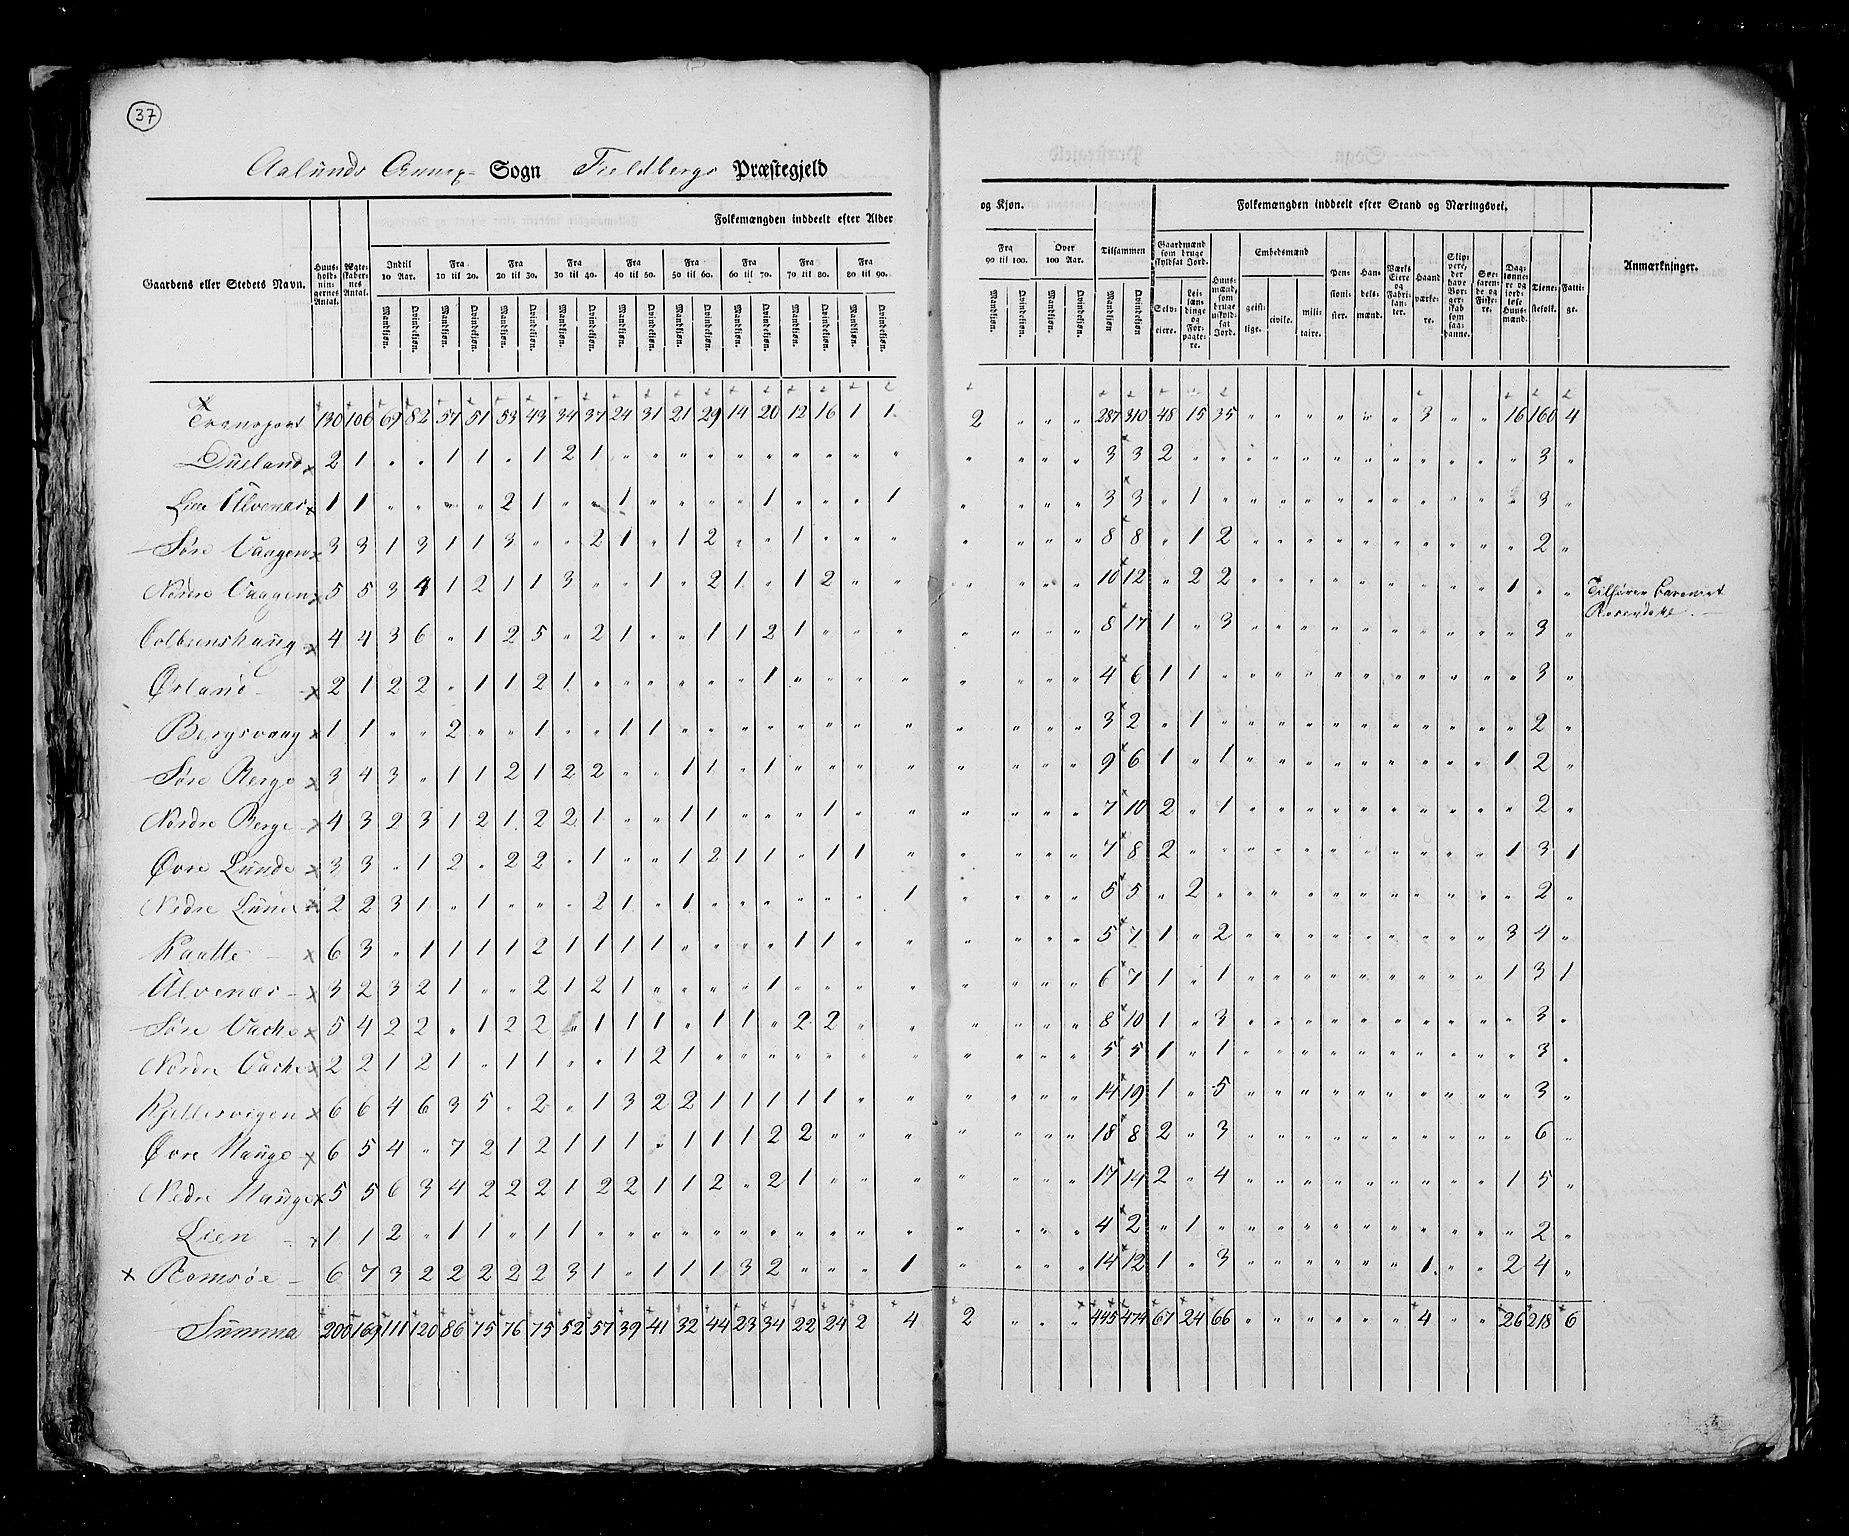 37
Aalunds Annex- Sogn Fieldbergs Præstegjeld
Gaardens eller Stedets Navn. Huusholdningernes Antal. Ægteskabernes Antal. Folkemængden inddeelt efter Alder og Kjøn. Folkemængden inddeelt efter Stand og Næringsvei. Anmærkninger.
Indtil 10 Aar. Fra 10 til 20. Fra 20 til 30. Fra 30 til 40. Fra 40 til 50. Fra 50 til 60. Fra 60 til 70. Fra 70 til 80. Fra 80 til 90. Fra 90 til 100. Over 100 Aar. Tilsammen
Gaardmænd som bruge skyldsat Jord. Embedsmænd
Mandkjøn. Qvindekjøn. Mandkjøn. Qvindekjøn. Mandkjøn. Qvindekjøn. Mandkjøn. Qvindekjøn. Mandkjøn. Qvindekjøn. Mandkjøn. Qvindekjøn. Mandkjøn. Qvindekjøn. Mandkjøn. Qvindekjøn. Mandkjøn. Qvindekjøn. Mandkjøn. Qvindekjøn. Mandkjøn. Qvindekjøn. Mandkjøn. Qvindekjøn. Selveiere. Leilændinge og Forpagtere. Huusmænd, som bruge uskyldsat Jord. geistlige. civile. militaire. Pensionister. Handelsmænd. Værks Eiere og Fabrikanter. Haandværkere. Skippere, der have Borgerskab som saadanne. Søefarende og Fiskere. Daglønnere og jordløse Huusmænd. Tjenestefolk. Fattige.
Transport 130 106 69 82 57 51 53 43 34 37 24 31 21 29 14 20 12 16 1 1 2 " " " 287 310 48 15 35 " " " " " " 3 " " 16 160 4
Dueland 2 1 " " 1 1 " 1 2 1 " " " " " " " " " " " " " " 3 3 2 " " " " " " " " " " " " 3 "
Lille Ulvenæs 1 1 " " " " 2 1 " " 1 " " " " 1 " " " 1 " " " " 3 3 " 1 " " " " " " " " " " " 3 "
Søre Vaagen 3 3 1 3 1 1 3 " " 2 1 " 1 2 " " 1 " " " " " " " 8 8 " 1 2 " " " " " " " " " " 2 "
Nordre Vaagen 5 5 3 4 1 2 1 1 3 " " 1 " 2 1 " 1 2 " " " " " " 10 12 " 2 2 " " " " " " " " " 1 " " Tilhører Baroniet Rosendahl
Colbeenshaug 4 4 3 6 " 1 2 5 " 2 1 " " 1 1 2 1 " " " " " " " 8 17 1 " 3 " " " " " " " " " " 3 "
Ørland 2 1 2 2 " 1 1 2 1 " " " " " " 1 " " " " " " " " 4 6 1 1 " " " " " " " " " " " 3 "
Bergsvaag 1 1 " " 2 " " 1 " " 1 1 " " " " " " " " " " " " 3 2 " 1 " " " " " " " " " " " 2 "
Søre Berge 3 4 3 " 1 1 2 1 2 2 " " 1 1 " 1 " " " " " " " " 9 6 1 " 1 " " " " " " " " " 1 2 "
Nordre Berge 4 3 2 3 1 2 1 2 2 1 " " 1 1 " " " 1 " " " " " " 7 10 2 " 1 " " " " " " " " " " 2 "
Øvre Lunde 3 3 " 1 2 " 2 2 " 1 " " 1 2 1 1 " 1 1 " " " " " 7 8 2 " " " " " " " " " " " 1 3 1
Nedre Lunde 2 2 3 1 " 1 " " " 2 1 " 1 " " " " " " 1 " " " " 5 5 " 2 " " " " " " " " " " " 2 "
Kaatte 6 3 " 1 1 1 1 2 1 1 1 1 " " " " 1 1 " " " " " " 5 7 1 " 2 " " " " " " " " " 3 4 "
Ulvenæs 3 2 3 2 1 " " 2 1 2 1 " " " " 1 " " " " " " " " 6 7 1 " 1 " " " " " " " " " 1 3 1
Søre Vache 5 4 2 2 " 1 2 2 " 1 1 1 " 1 1 " 2 2 " " " " " " 8 10 1 " 3 " " " " " " " " " " 3 "
Nordre Vache 2 2 1 2 1 " 1 1 " " 1 2 1 " " " " " " " " " " " 5 5 1 " 1 " " " " " " " " " " 3 "
Kjellesvigen 6 6 4 6 3 5 " 2 " 1 3 2 2 1 1 1 1 1 " " " " " " 14 19 1 " 5 " " " " " " " " " " 3 "
Øvre Hauge 6 5 4 " 7 2 1 2 1 1 1 " 1 1 1 2 2 " " " " " " " 18 8 2 " 3 " " " " " " " " " " 6 "
Nedre Hauge 5 5 6 3 4 2 2 2 1 2 2 1 1 2 " 2 1 " " " " " " " 17 14 2 " 4 " " " " " " " " " 1 5 "
Lien 1 1 2 " 1 1 " 1 1 " " " " " " " " " " " " " " " 4 2 " 1 " " " " " " " " " " " 2 "
Romsøe 6 7 3 2 2 2 2 2 3 1 " 1 1 1 3 2 " " " 1 " " " " 14 12 1 " 3 " " " " " " 1 " " 2 4 "
Summa 200 169 111 120 86 75 76 75 52 57 39 41 32 44 23 34 22 24 2 4 2 " " " 445 474 67 24 66 " " " " " " 4 " " 26 218 6